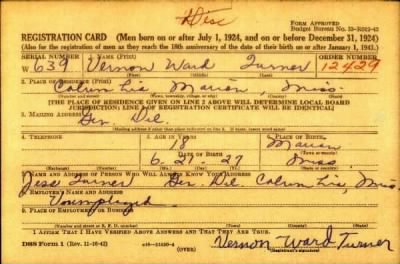 Disc
FORM APPROVED
Budget Bureau No. 33-R012-42
REGISTRATION CARD (Men born on or after July 1, 1924, and on or before December 31, 1924)
(Also for the registration of men as they reach the 18th anniversary of the date of their birth on or after January 1, 1943.)
SERIAL NUMBER 1. NAME (Print) ORDER NUMBER
W 639 Vernon Ward Turner 12429
2. PLACE OF RESIDENCE (Print)
Columbia, Marion, Miss
(Number and street) (Town, township, village, or city) (County) (State)
[THE PLACE OF RESIDENCE GIVEN ON LINE 2 ABOVE WILL DETERMINE LOCAL BOARD
JURISDICTION; LINE 2 OF REGISTRATION CERTIFICATE WILL BE IDENTICAL]
3. MAILING ADDRESS
Gen. Del.
4. TELEPHONE 5. AGE IN YEARS 6. PLACE OF BIRTH
18 Marion
DATE OF BIRTH
6-21-27 Miss
7. NAME AND ADDRESS OF PERSON WHO WILL ALWAYS KNOW YOUR ADDRESS
Jess Turner Gen. Del. Columbia, Miss.
8. EMPLOYER'S NAME AND ADDRESS
Unemployed
9. PLACE OF EMPLOYMENT OR BUSINESS
(Number and street or R. F. D. number) (Town) (County) (State)
I AFFIRM THAT I HAVE VERIFIED ABOVE ANSWERS AND THAT THEY ARE TRUE.
DSS Form 1 (Rev. 11-16-42) (OVER) Vernon Ward Turner
(Registrant's signature)